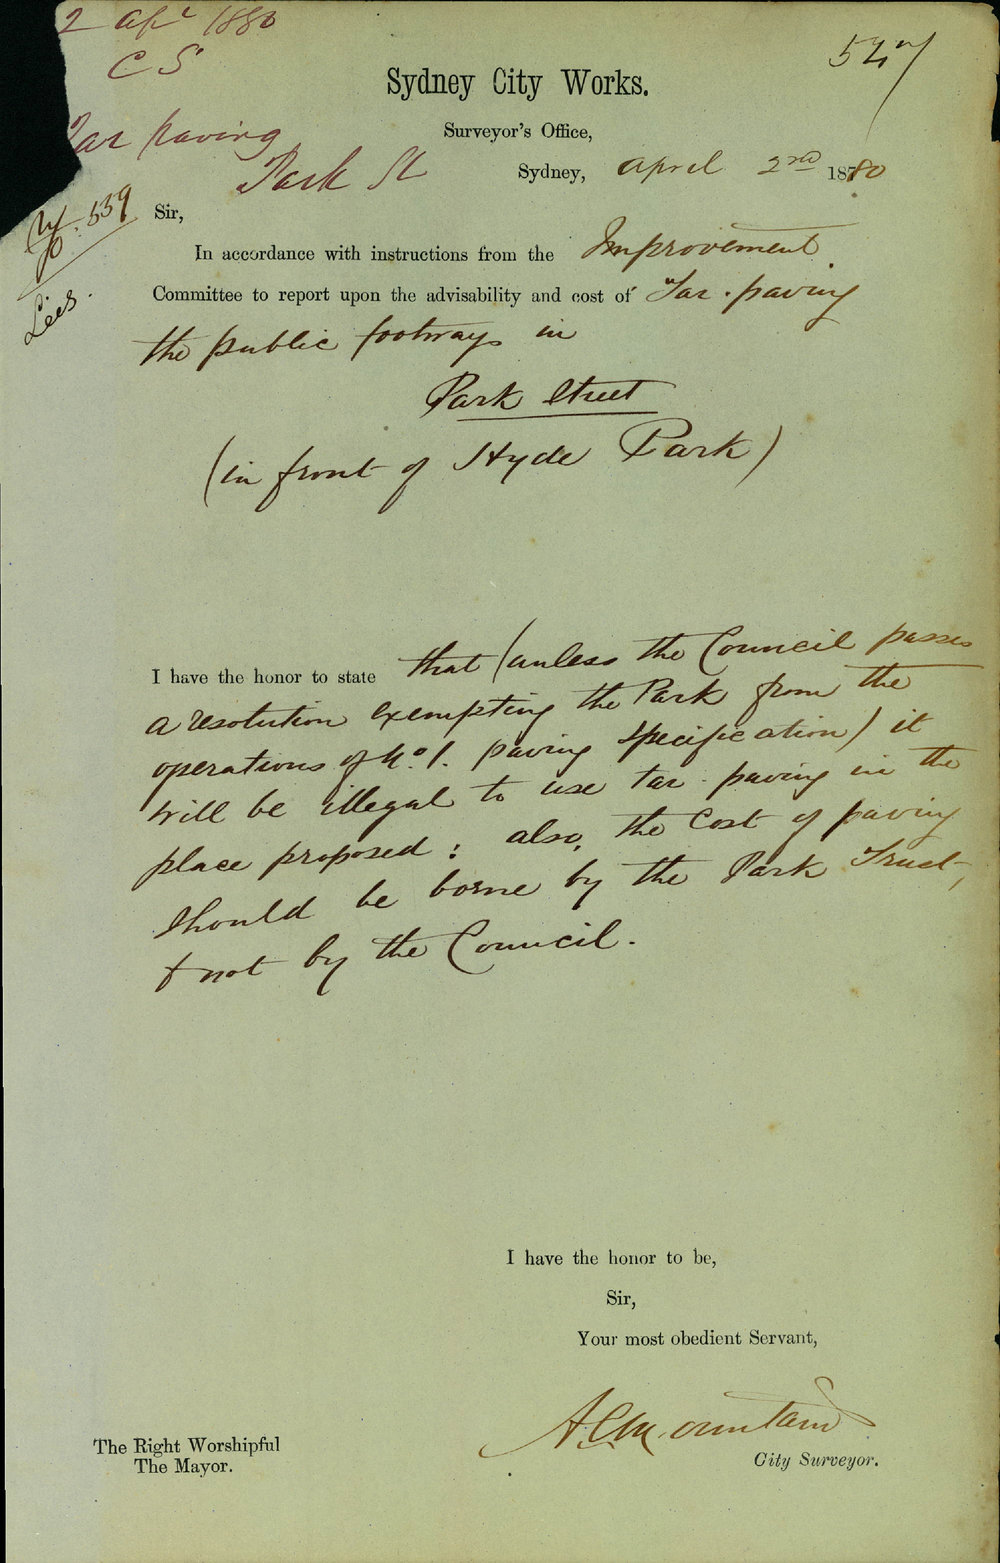 2 Apl 1880
C S
Tar paving
Park St
547
Sydney City Works.
Surveyor's Office,
Sydney, April 2nd 1880
559
Lees.
Sir,
In accordance with instructions from the Improvement
Committee to report upon the advisability and cost of Tar-paving
the public footways in
Park Street
(in front of Hyde Park)
I have the honor to state that (unless the Council passes
a resolution exempting the Park from the
operations of No. 1. paving specification) it
will be illegal to use tar-paving in the
place proposed: also, the cost of paving
should be borne by the Park Trust,
& not by the Council.
I have the honor to be,
Sir,
Your most obedient Servant,
A.C. Mountain
City Surveyor.
The Right Worshipful
The Mayor.